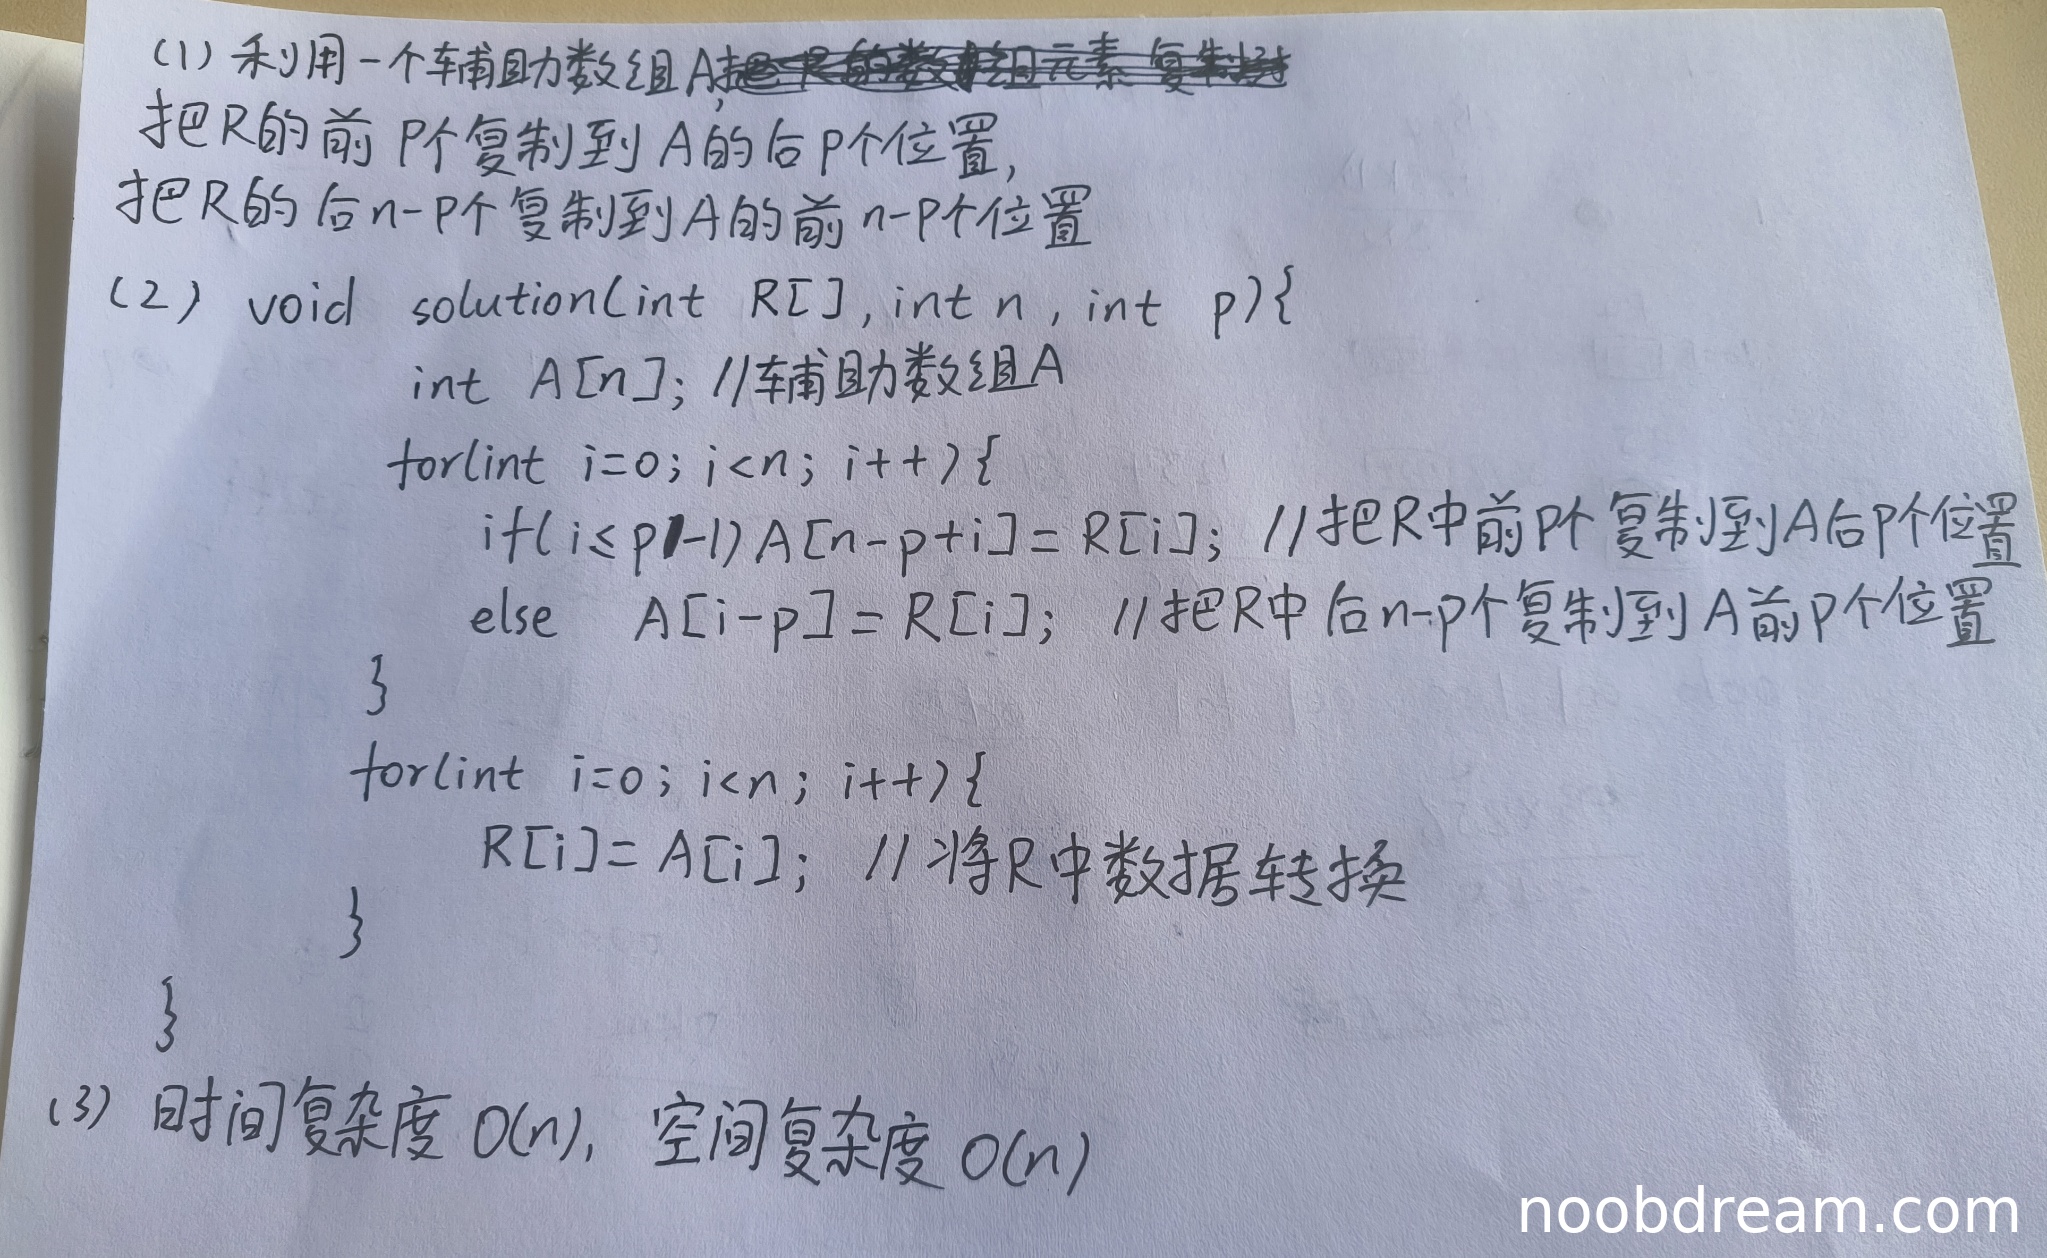 (1) 利用一个辅助数组A,
把R的前p个复制到A的后p个位置,
把R的后n-p个复制到A的前n-p个位置
(2) void solution(int R[], int n, int p){
int A[n]; //辅助数组A
for(int i=0; i<n; i++){
if(i≤p-1) A[n-p+i]=R[i]; //把R中前p个复制到A后p个位置
else A[i-p]=R[i]; //把R中后n-p个复制到A前p个位置
}
for(int i=0; i<n; i++){
R[i]=A[i]; //将R中数据转换
}
}
(3) 时间复杂度O(n), 空间复杂度O(n)
noobdream.com